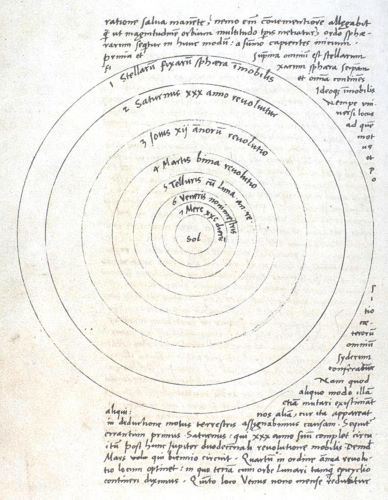 ratione salua manēte, nemo em̄ cōuenientiorē allegabit
q̃ ut magnitudinē orbium multitudo tp̄is metiatur, ordo sphæ-
rarum seqt̃ur in hunc modū: a sūmo capientes initium.
prima et suprema omniū est stellarum
fixarum sphæra seipsam
et omnia continēs
Ideoq; īmobilis
Nempe uni-
uersi locus
ad quē
mot
us
et
p
1 Stellarū fixarū sphæra īmobilis
2 Saturnus xxx anno reuoluitur
3 Iouis xij annorū reuolutio
4 Martis bima reuolutio
5 Telluris cū luna an. re
6 Veneris nonimestris
7 Merc xxc dierū
Sol
S
i
tio
cæ-
terorū
omniū
syderum
conferatur
Nam quod
aliquo modo illā
etiā mutari existimāt
aliqui: nos aliā, cur ita appareat
in deductione motus terrestris assignabimus causam. Sequit̃
errantium primus Saturnus: qui xxx anno suū complet circu-
itū. Post hunc Iupiter duodecennali reuolutione mobilis. Deinde
Mars uolo qui biennio circuit. Quartū in ordine annua reuolu-
tio locum optinet: in quo terrā cum orbe lunari tanq̃ epicyclo
contineri diximus. Quīto loco Venus nono mense reducitur